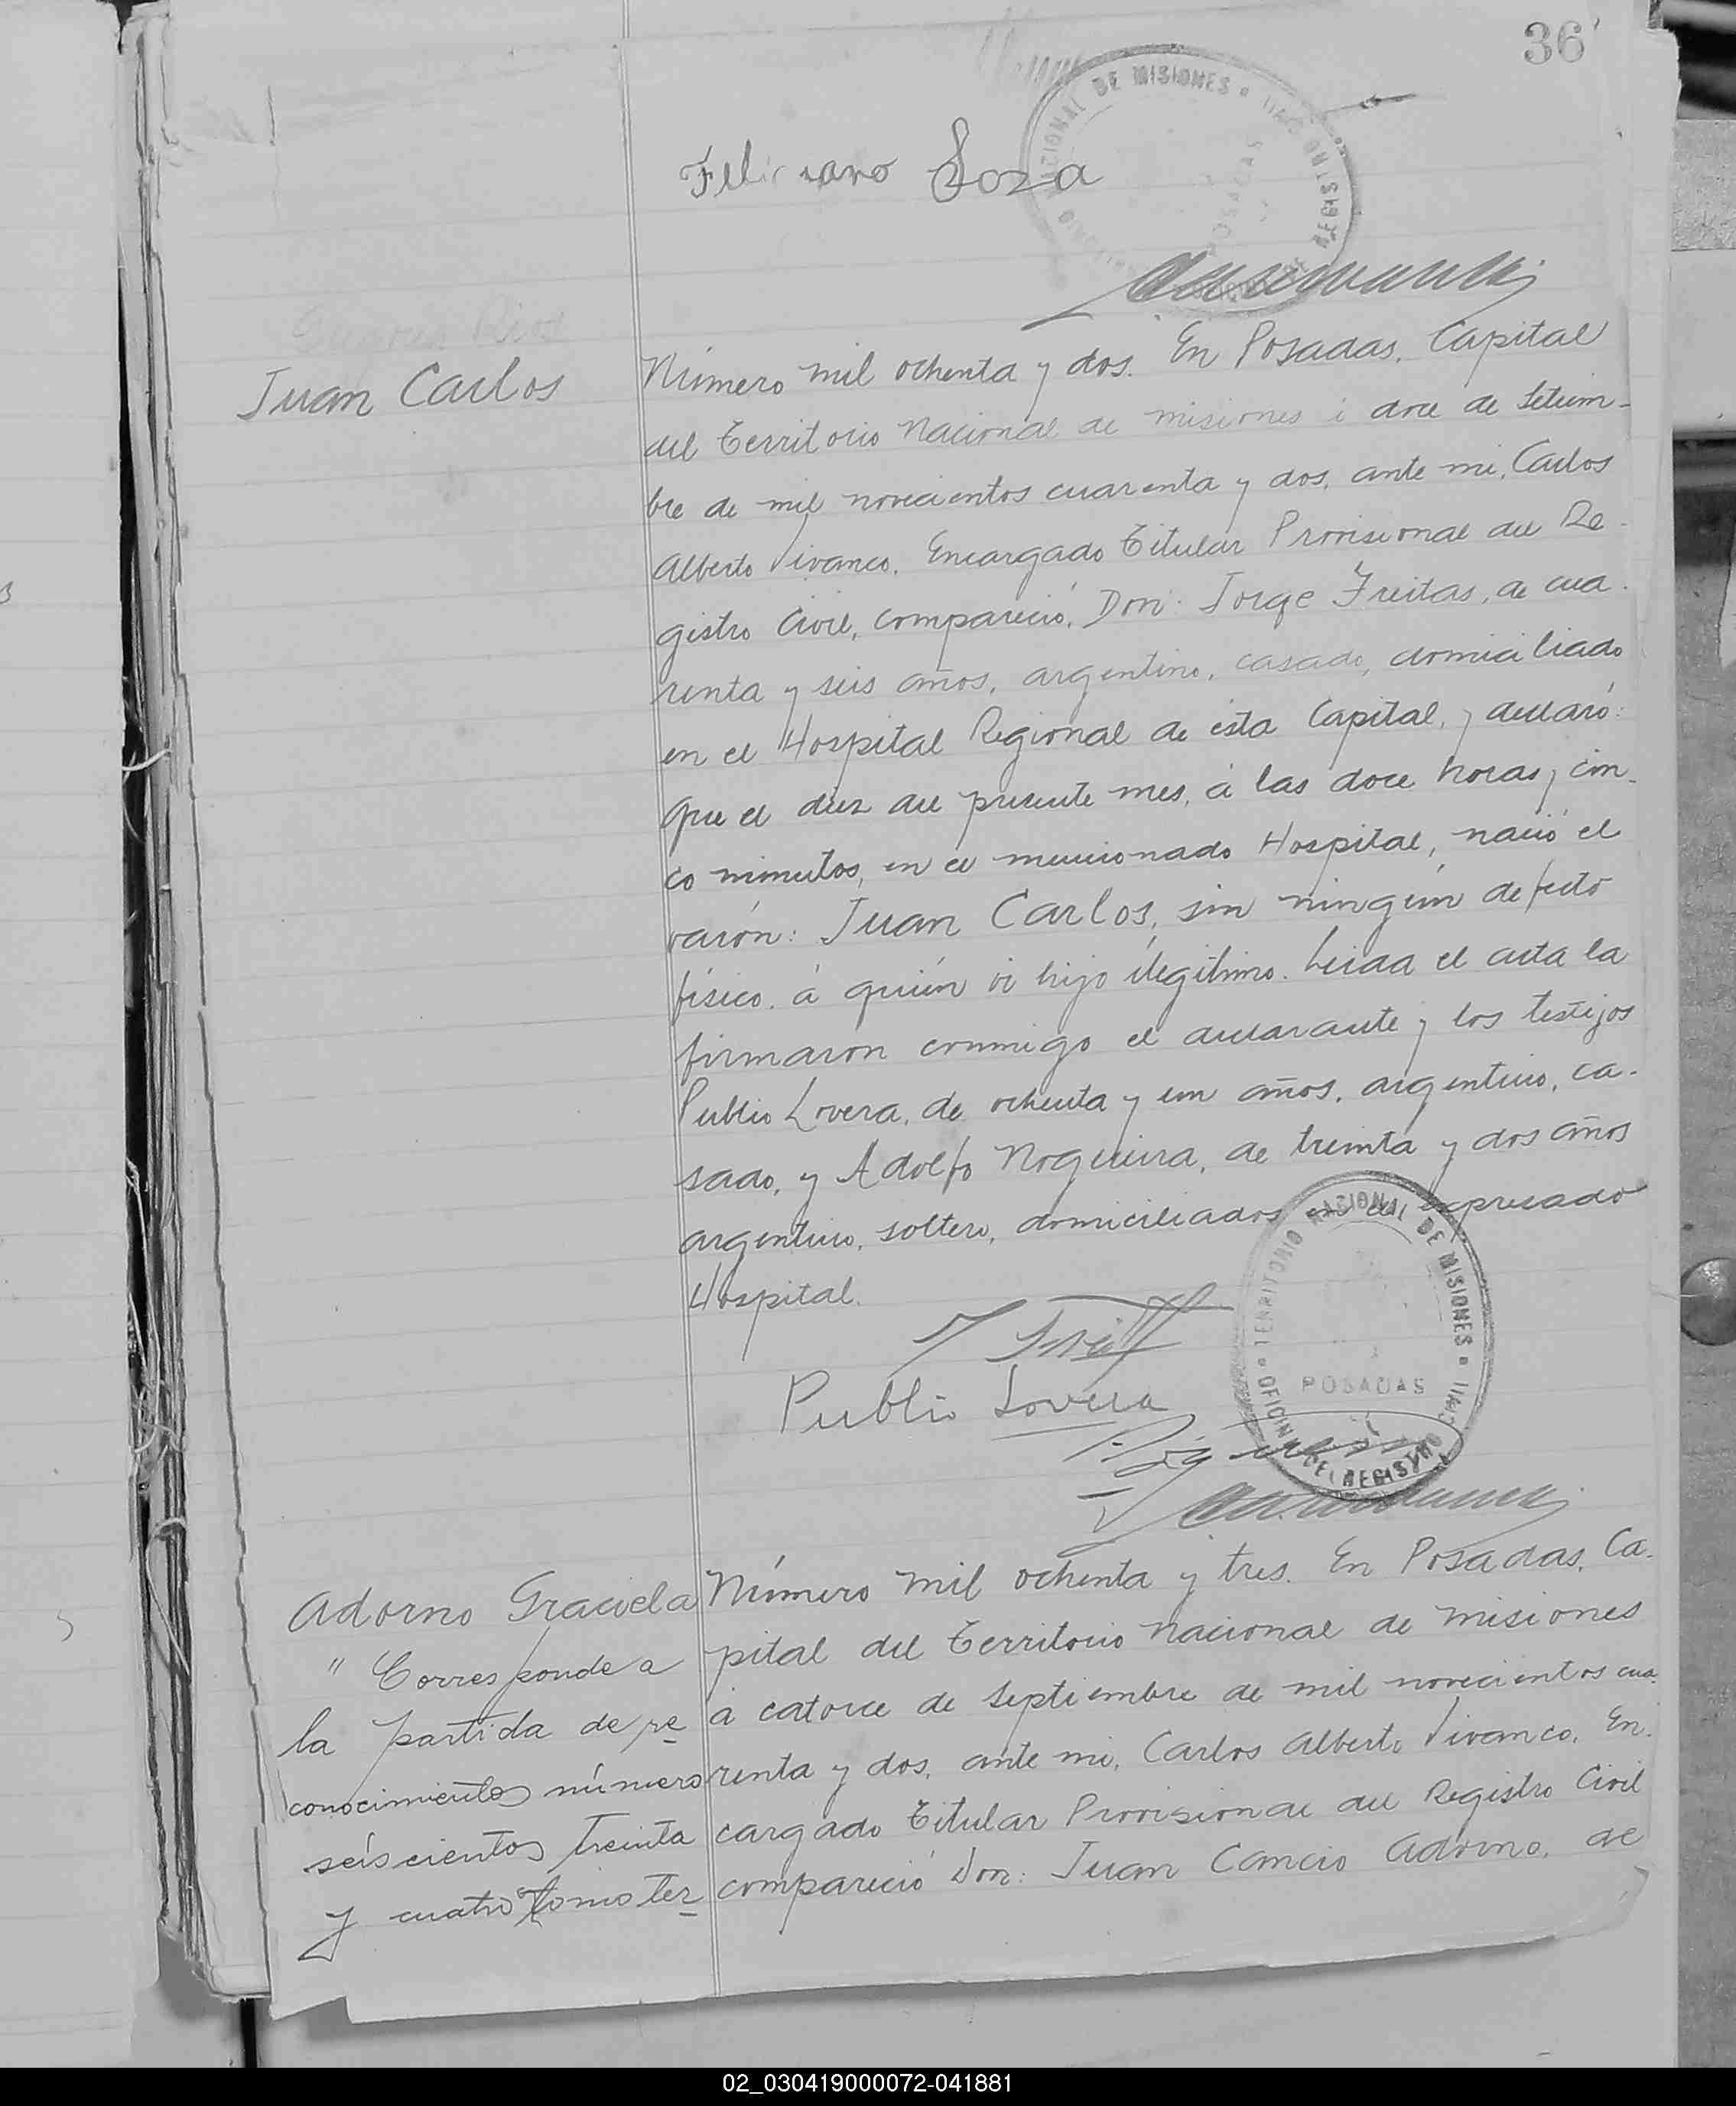 36
Feliciano Soza
TERRITORIO NACIONAL DE MISIONES
REGISTRO CIVIL
POSADAS
Juan Carlos
Número mil ochenta y dos. En Posadas, Capital
del Territorio Nacional de misiones á doce de Setiem-
bre de mil novecientos cuarenta y dos, ante mi, Carlos
Alberto Vivanco, Encargado Titular Provisional del Re-
gistro Civil, compareció, Don: Jorge Freitas, de cua-
renta y seis años, argentino, casado, domiciliado
en el Hospital Regional de esta Capital, y declaró:
Que el diez del presente mes, á las doce horas y cin-
co minutos, en el mencionado Hospital, nació el
varón: Juan Carlos, sin ningún defecto
físico, á quién vi hijo ilegítimo. Leida el acta la
firmaron conmigo el declarante y los testijos
Publio Lovera, de ochenta y un años, argentino, ca-
sado, y Adolfo Nogueira, de treinta y dos años
argentino, soltero, domiciliados en el expresado
Hospital.
Publio Lovera
OFICINA DEL REGISTRO CIVIL
TERRITORIO NACIONAL DE MISIONES
POSADAS
Adorno Graciela
" Corresponde a
la partida de re
conocimiento número
seiscientos treinta
y cuatro tomo ter
Número mil ochenta y tres. En Posadas, Ca-
pital del Territorio Nacional de Misiones
á catorce de Septiembre de mil novecientos cua-
renta y dos, ante mi, Carlos Alberto Vivanco, En-
cargado Titular Provisional del Registro Civil
compareció Don: Juan Cancio Adorno, de
02_030419000072-041881